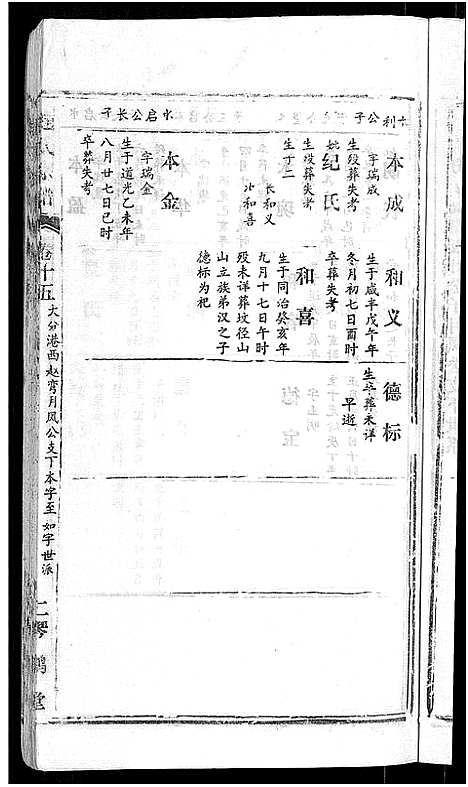 公子
本成
字瑞成
生殁葬失考
妣纪氏
生殁葬失考
生子二
长和义
次和喜
水启公长子
本金
字瑞金
生于道光乙未年
八月廿七日巳时
卒葬失考
和义
生于咸丰戊午年
冬月初七日酉时
卒葬失考
和喜
生于同治癸亥年
九月十七日午时
殁未详葬坟径山
山立族弟汉之子
德标为祀
德标
生卒葬未详
早逝
卷十五
大分港西赵弯月凤公支下本字至如字世派
二
琴鹤堂